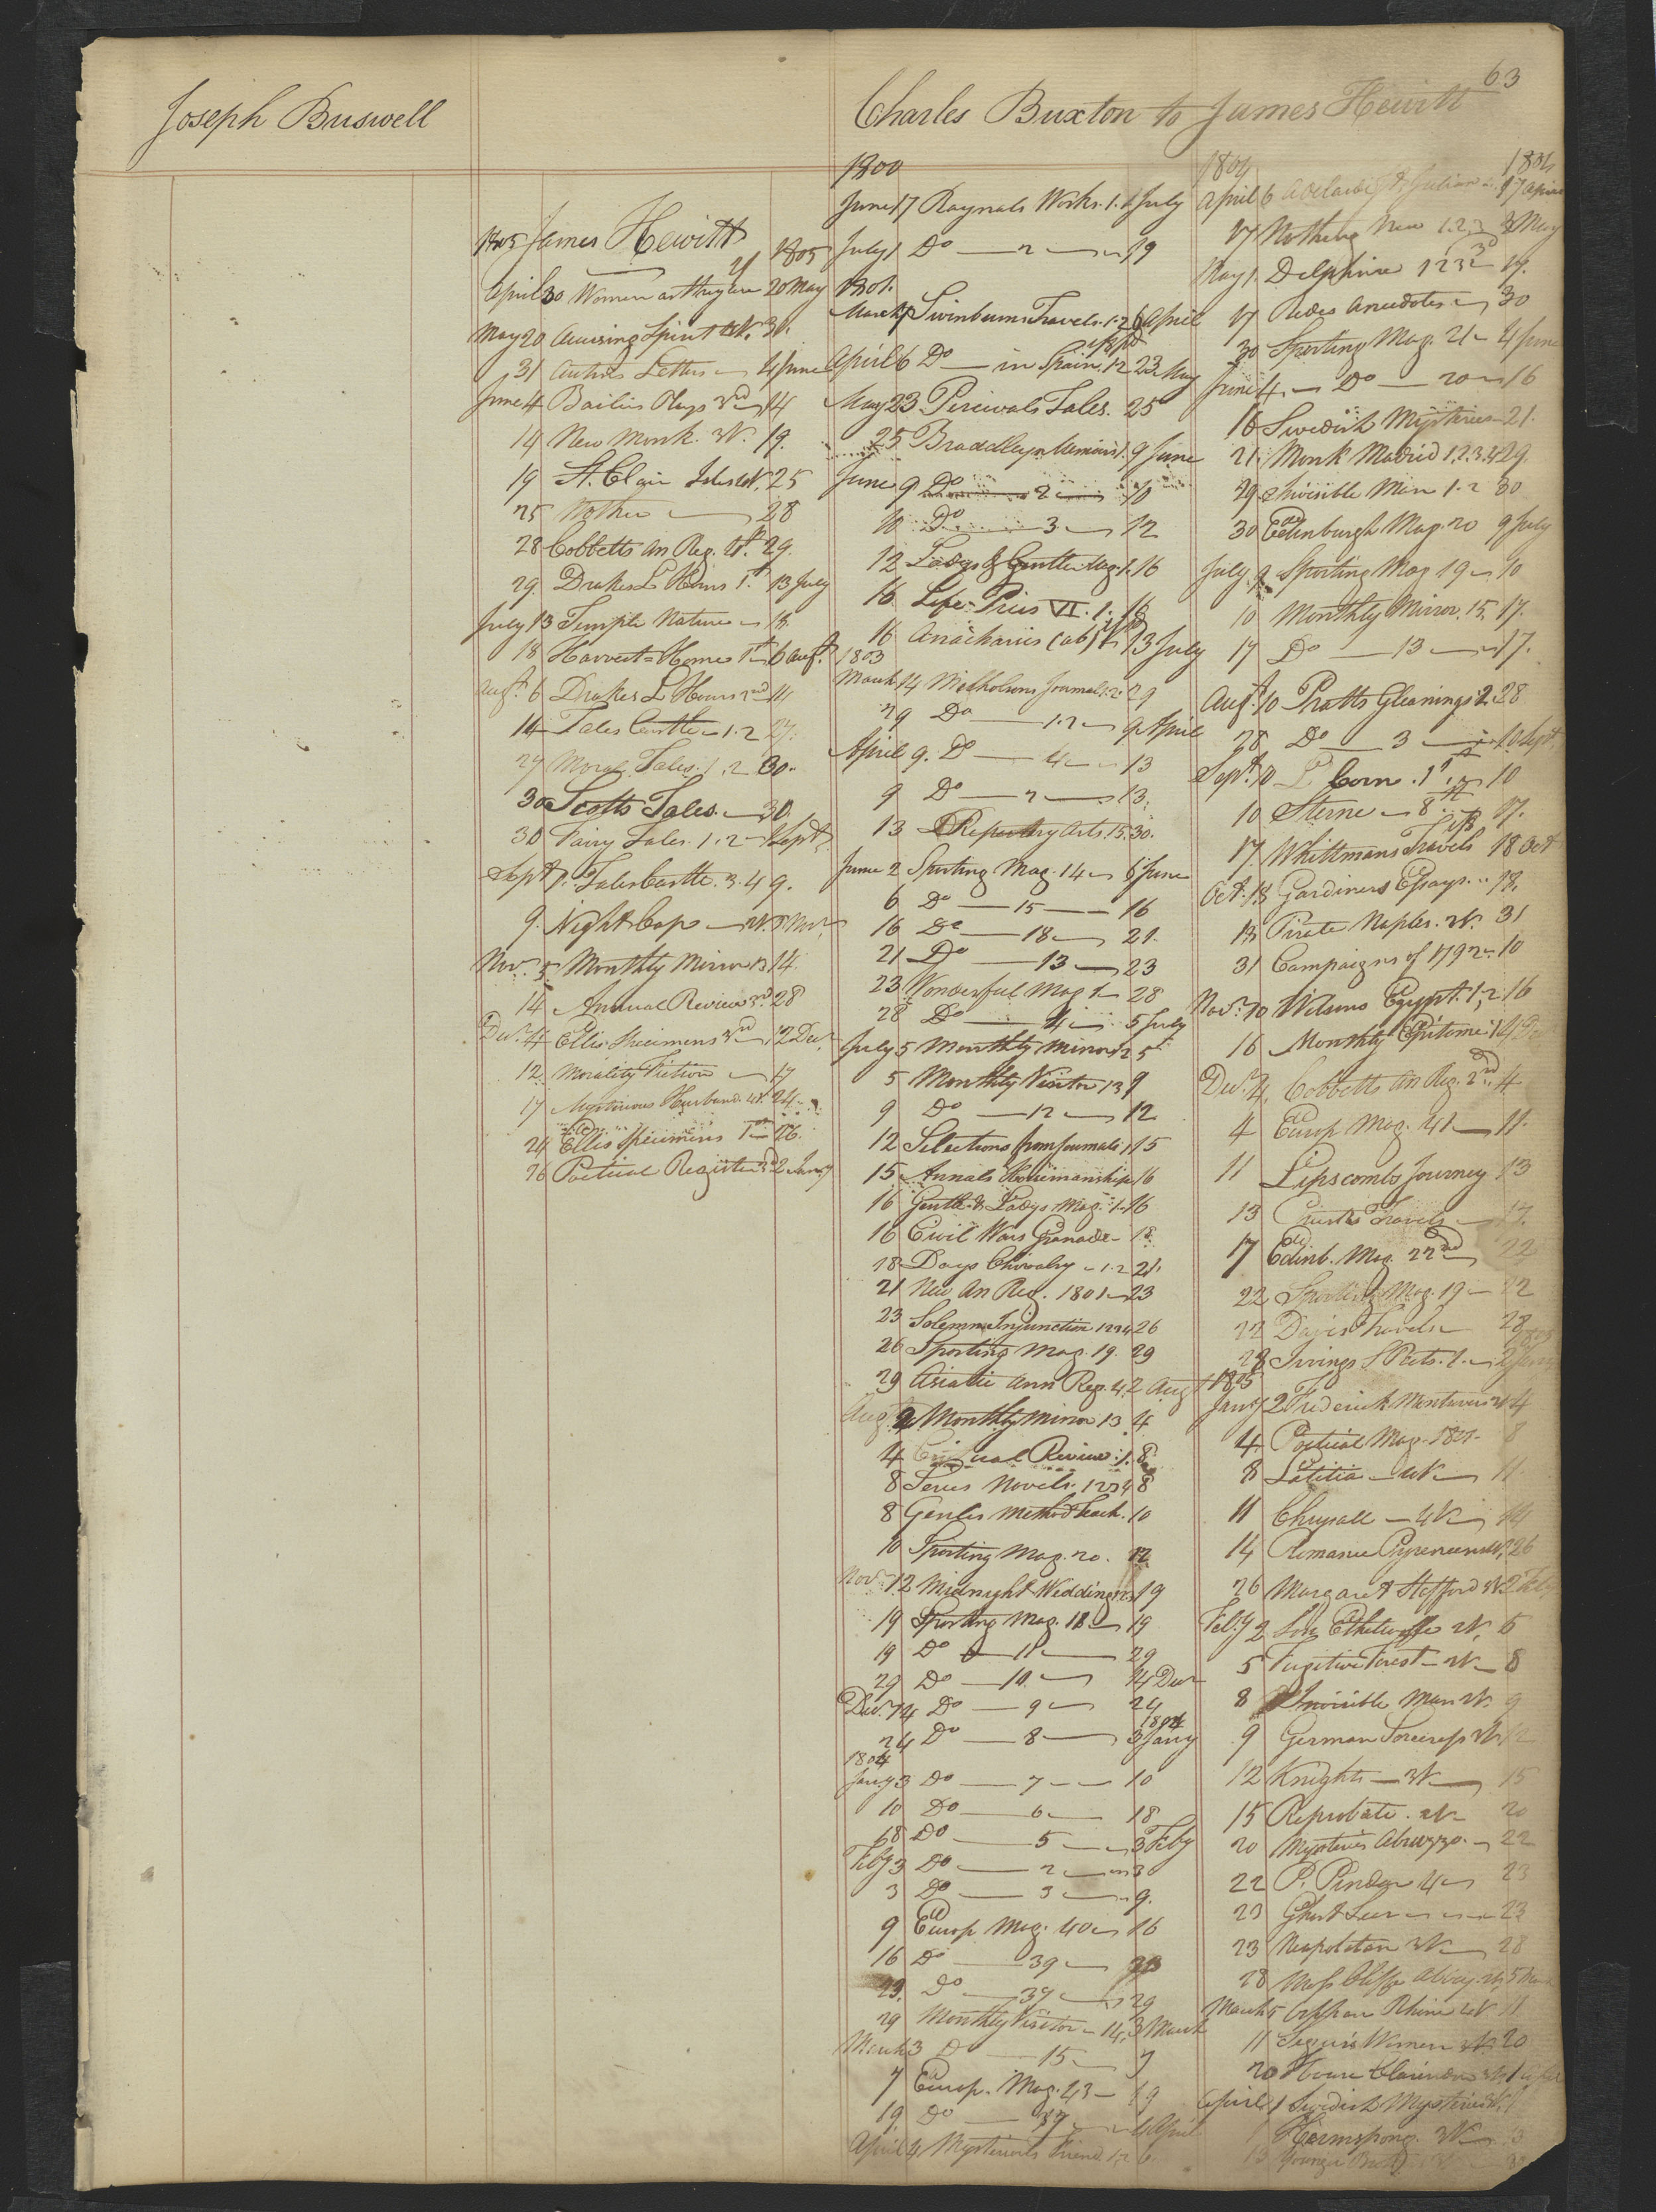 63
Joseph Buswell
Charles Buxton to James Hewitt
1805 James Hewitt 1805
April 30 Women as they are 20 May
May 20 Amusing Spirit 31.
31 Letters 4 June
June 4 Bailies Plays 3rd 14
14 New Monk. 3V. 19.
19 St. Clair Isles 4V. 25
25 28
28 Cobbetts An Reg. 29.
29. Drakes L Hours 1st 13 July
July 13 Temple Nature 18
18 Harvest=Home 1st 6 Augt.
Augt. 6 Drakes L Hours 2nd 14
14 Tales Castle 1.2 27.
27 Moral Tales. 1.2 30.
30 Scotts Tales. 30.
30 Fairy Tales. 1.2 1 Sept
Sept 1. Tales Castle. 3.4 9.
9. Night Cap 5 Nov.
Nov. 5 Monthly Mirror 13 14.
14 Annual Review 3rd 28
Decr. 4 Ellis Specimens 3rd 12 Decr.
12 Morality Fiction 17
17 Mysterious Husband. 4V. 24.
24 Ellis Specimens 1st 26.
26 Poetical Register 3d 2 Jany
1800
June 17 Raynals Works. 1. 1 July
July 1 Do 2 19
1801.
March 7 Swinburns Travels. 1.2 6 April
April 6 Do in Spain. 1.2 23 May
May 23 Percivals Tales. 25
25 Braddleys Memoirs 1. 9 June
June 9 Do 2 10
10 Do 3 12
12 Ladys & Gentle. Mag. 1. 16
16 Life Pius VI. 1. 16
16 Anacharsis (ab) 13 July
1803
March 14 Nicholsons Journal. 2. 29
29 Do 1.2 9 April
April 9. Do 4 13
9 Do 2 13.
13 Repertory Arts. 15. 30.
June 2 Sporting Mag. 14 6 June
6 Do 15 16
16 Do 18 21.
21 Do 13 23
23 Wonderful Mag 1 28
28 Do 4 5 July
July 5 Monthly Mirror 12 5
5 Monthly Visitor 13 9
9 Do 12 12
12 Selections from Journals 1 15
15 Annals Horsemanship 16
16 Gentle. & Ladys Mag. 1. 16
16 Civil Wars Granade 18
18 Days Chivalry 1.2 21.
21 New An Reg. 1801 23
23 Solemn Injunction 1234 26
26 Sporting Mag. 19. 29
29 Asiatic Ann Reg. 4. 2 Augt
Augt. 2 Monthly Mirror 13 4
4 Critical Review. 1. 8
8 Series Novels. 1234 8
8 Gentles Method Teach. 10
10 Sporting Mag. 20. 12.
Nov. 12 Midnight Weddings 123 19
19 Sporting Mag. 12 19
19 Do 11 29
29 Do 10 14 Decr
Decr. 14 Do 9 24
1804
24 Do 8 3 Jany
1804
Jany 3 Do 7 10
10 Do 6 18
18 Do 5 3 Feby
Feby 3 Do 2 3
3 Do 3 9.
9 Europ Mag. 40 16
16 Do 39 23
23. Do 37 29
29 Monthly Visitor 14. 3 March
March 3 Do 15 7
7 Europ. Mag. 43 19
19 Do 4 April
April 4 Mysterious Friend. 1.2 6
1804 1804
April 6 Adelaide & Julian 17 April
17 Nothing New 1.2.3 3 May
May 1. Delphine 1 2 3d 17.
17 Redes Anecdotes 30
30 Sporting Mag. 21 4 June
June 4 Do 20 16
16 Swedish Mysteries 21.
21. Monk Madrid 1.2.3.4 29.
29 Invisible Man 1.2 30
30 Edinburgh Mag. 20 9 July
July 9 Sporting Mag 19 10
10 Monthly Mirror. 15. 17.
17 Do 13 17.
Augt. 10 Pratts Gleanings 2. 28
28 Do 3 10 Sept
Sept. 10 Corn. 1st 10
10 Sterne 8th 17.
17. Whittmans Travels 18 Oct
Oct. 18 Gardiners Essays. 18.
18 Pirate Naples. 3V. 31
31 Campaigns of 1792 10
Nov. 10 Wilsons Egypt. 1.2 16
16 Monthly Epitome
Decr. 4. Cobbetts An Reg. 2nd. 4
4 Europ Mag. 41 11.
11 Lipscombs Journey 13
13 Travels 17.
17 Edinb. Mag. 22nd 22
22 Sporting Mag. 19 22
22 Davis Travels 28
28 Irvings S Poets. 1. 2 Jany
1805
Jany 2 Frederick Montavers 2V 4
4 Poetical Mag. 8
8 Latitia 11
11 Chrysall 4V 14
14 Romance Pyrenees 4V. 26
26 Margaret Stafford 3V. 2 Feby
Feby 2 Son Ethelwolfe 2V. 5
5 Fugitive Forest 2V 8
8 Invisible Man 2V. 9
9 German Sorceress 3V 12
12 Knights 3V 15
15 Reprobate. 2V 20
20 Mysteries Abruzzo. 22
22 P. Pindar 4 23
23 Ghost Seer 23
23 Neapolitan 3V 28
28 Abbey. 5
March 5 Orphan Rhine 4V 11
11 Segurs Women 3V. 20
20 House Clarendon 3V. 1
April 1 Swedish Mysteries 3V. 1
1 Hermsprong. 3V 3